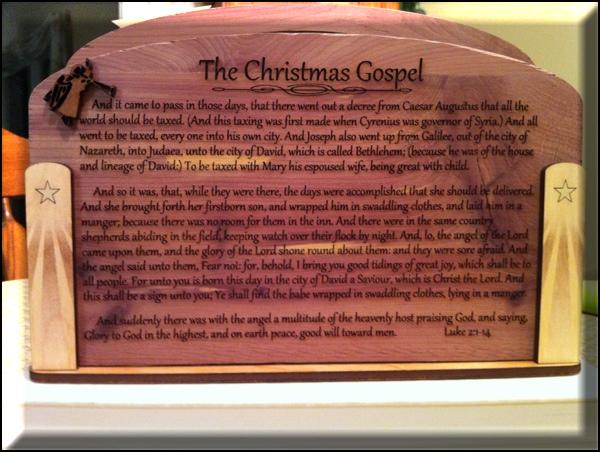 The Christmas Gospel
And it came to pass in those days, that there went out a decree from Caesar Augustus that all the
world should be taxed. (And this taxing was first made when Cyrenius was governor of Syria.) And all
went to be taxed, every one into his own city. And Joseph also went up from Galilee, out of the city of
Nazareth, into Judaea, unto the city of David, which is called Bethlehem; (because he was of the house
and lineage of David:) To be taxed with Mary his espoused wife, being great with child.
And so it was, that, while they were there, the days were accomplished that she should be delivered.
And she brought forth her firstborn son, and wrapped him in swaddling clothes, and laid him in a
manger; because there was no room for them in the inn. And there were in the same country
shepherds abiding in the field, keeping watch over their flock by night. And, lo, the angel of the Lord
came upon them, and the glory of the Lord shone round about them: and they were sore afraid. And
the angel said unto them, Fear not: for, behold, I bring you good tidings of great joy, which shall be to
all people. For unto you is born this day in the city of David a Saviour, which is Christ the Lord. And
this shall be a sign unto you; Ye shall find the babe wrapped in swaddling clothes, lying in a manger.
And suddenly there was with the angel a multitude of the heavenly host praising God, and saying,
Glory to God in the highest, and on earth peace, good will toward men. Luke 2:1-14